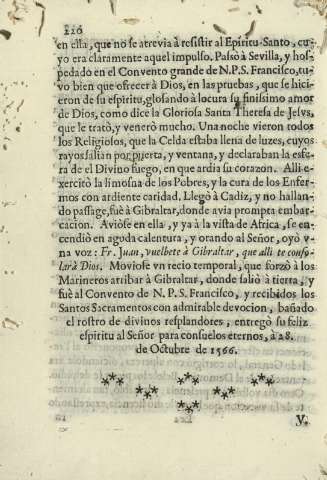 116
en ella, que no se atrevia à resistir al Espiritu-Santo, cu-
yo era claramente aquel impulso. Passò à Sevilla, y hos-
pedado en el Convento grande de N.P.S. Francisco, tu-
vo bien que ofrecer à Dios, en las pruebas, que se hici-
eron de su espiritu, glosando à locura su finissimo amor
de Dios, como dice la Gloriosa Santa Theresa de Jesvs,
que le tratò, y venerò mucho. Una noche vieron todos
los Religiosos, que la Celda estaba llena de luzes, cuyos
rayos salian por puerta, y ventana, y declaraban la esfe-
ra de el Divino fuego, en que ardia su corazon. Alli e-
xercitò la limosna de los Pobres, y la cura de los Enfer-
mos con ardiente caridad. Llegò à Cadiz, y no hallan-
do passage, fuè à Gibraltar, donde avia prompta embar-
cacion. Aviose en ella, y ya à la vista de Africa, se en-
cendiò en agoda calentura, y orando al Señor, oyò v-
na voz: Fr. Juan, vuelbete à Gibraltar, que alli te conso-
larà Dios. Moviose vn recio temporal, que forzò à los
Marineros arribar à Gibraltar, donde saliò à tierra, y
fuè al Convento de N. P. S. Francisco, y recibidos los
Santos Sacramentos con admirable devocion, bañado
el rostro de divinos resplandores, entregò su feliz
espiritu al Señor para consuelos eternos, à 28.
de Octubre de 1566.
Y.